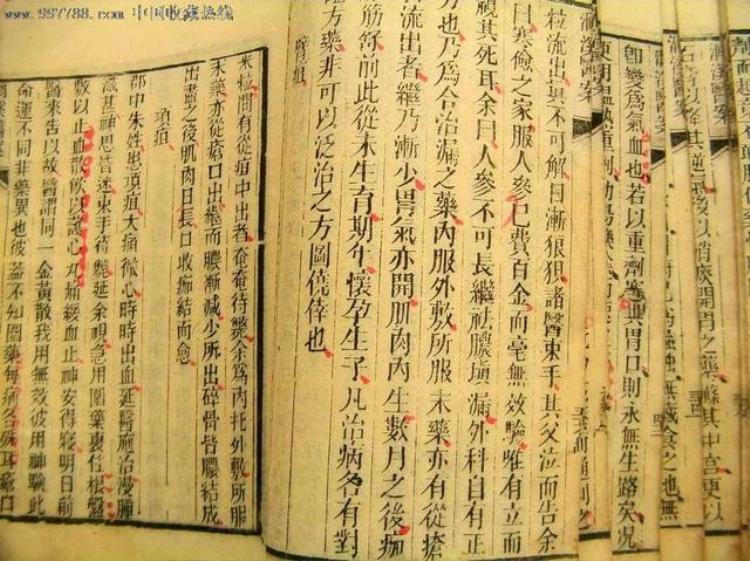 石膏以降其逆氣後以消痰開胃之藥滌其中宮更以
洄溪醫案
卽變爲氣血也若以重劑塞其胃口則永無生路矣況
洄溪醫案
粒流出眞不可解日漸狼狽諸醫束手其父泣而告余
曰寒儉之家服人參已費百金而毫無效驗唯有立而
視其死耳余曰人參不可長繼祛膿塡漏外科自有正
方也乃爲合治漏之藥內服外敷所服末藥亦有從瘡
流出者繼乃漸少胃氣亦開肌肉內生數月之後痂
筋舒前此從未生育期年懷孕生子凡治病各有對
方藥非可以泛治之方圖僥倖也
臂疽
米粒間有從疽中出者奄奄待斃余爲內托外敷所服
末藥亦從瘡口出繼而膿漸減少所出碎骨皆膿結成
出盡之後肌肉日長口收痂結而愈
項疽
郡中朱姓患項疽大痛徹心時時出血延醫施治漫腫
滋甚神思昏迷束手待斃延余視急用圍藥裹住根盤
敷以止血散飲以護心丸痛緩血止神安得寢明日前
醫來告以故醫謂同一金黃散我用無效彼用神驗此
命運不同非藥異也彼蓋不知圍藥每病各殊耳瘡口
www.997788.com 中国收藏热线